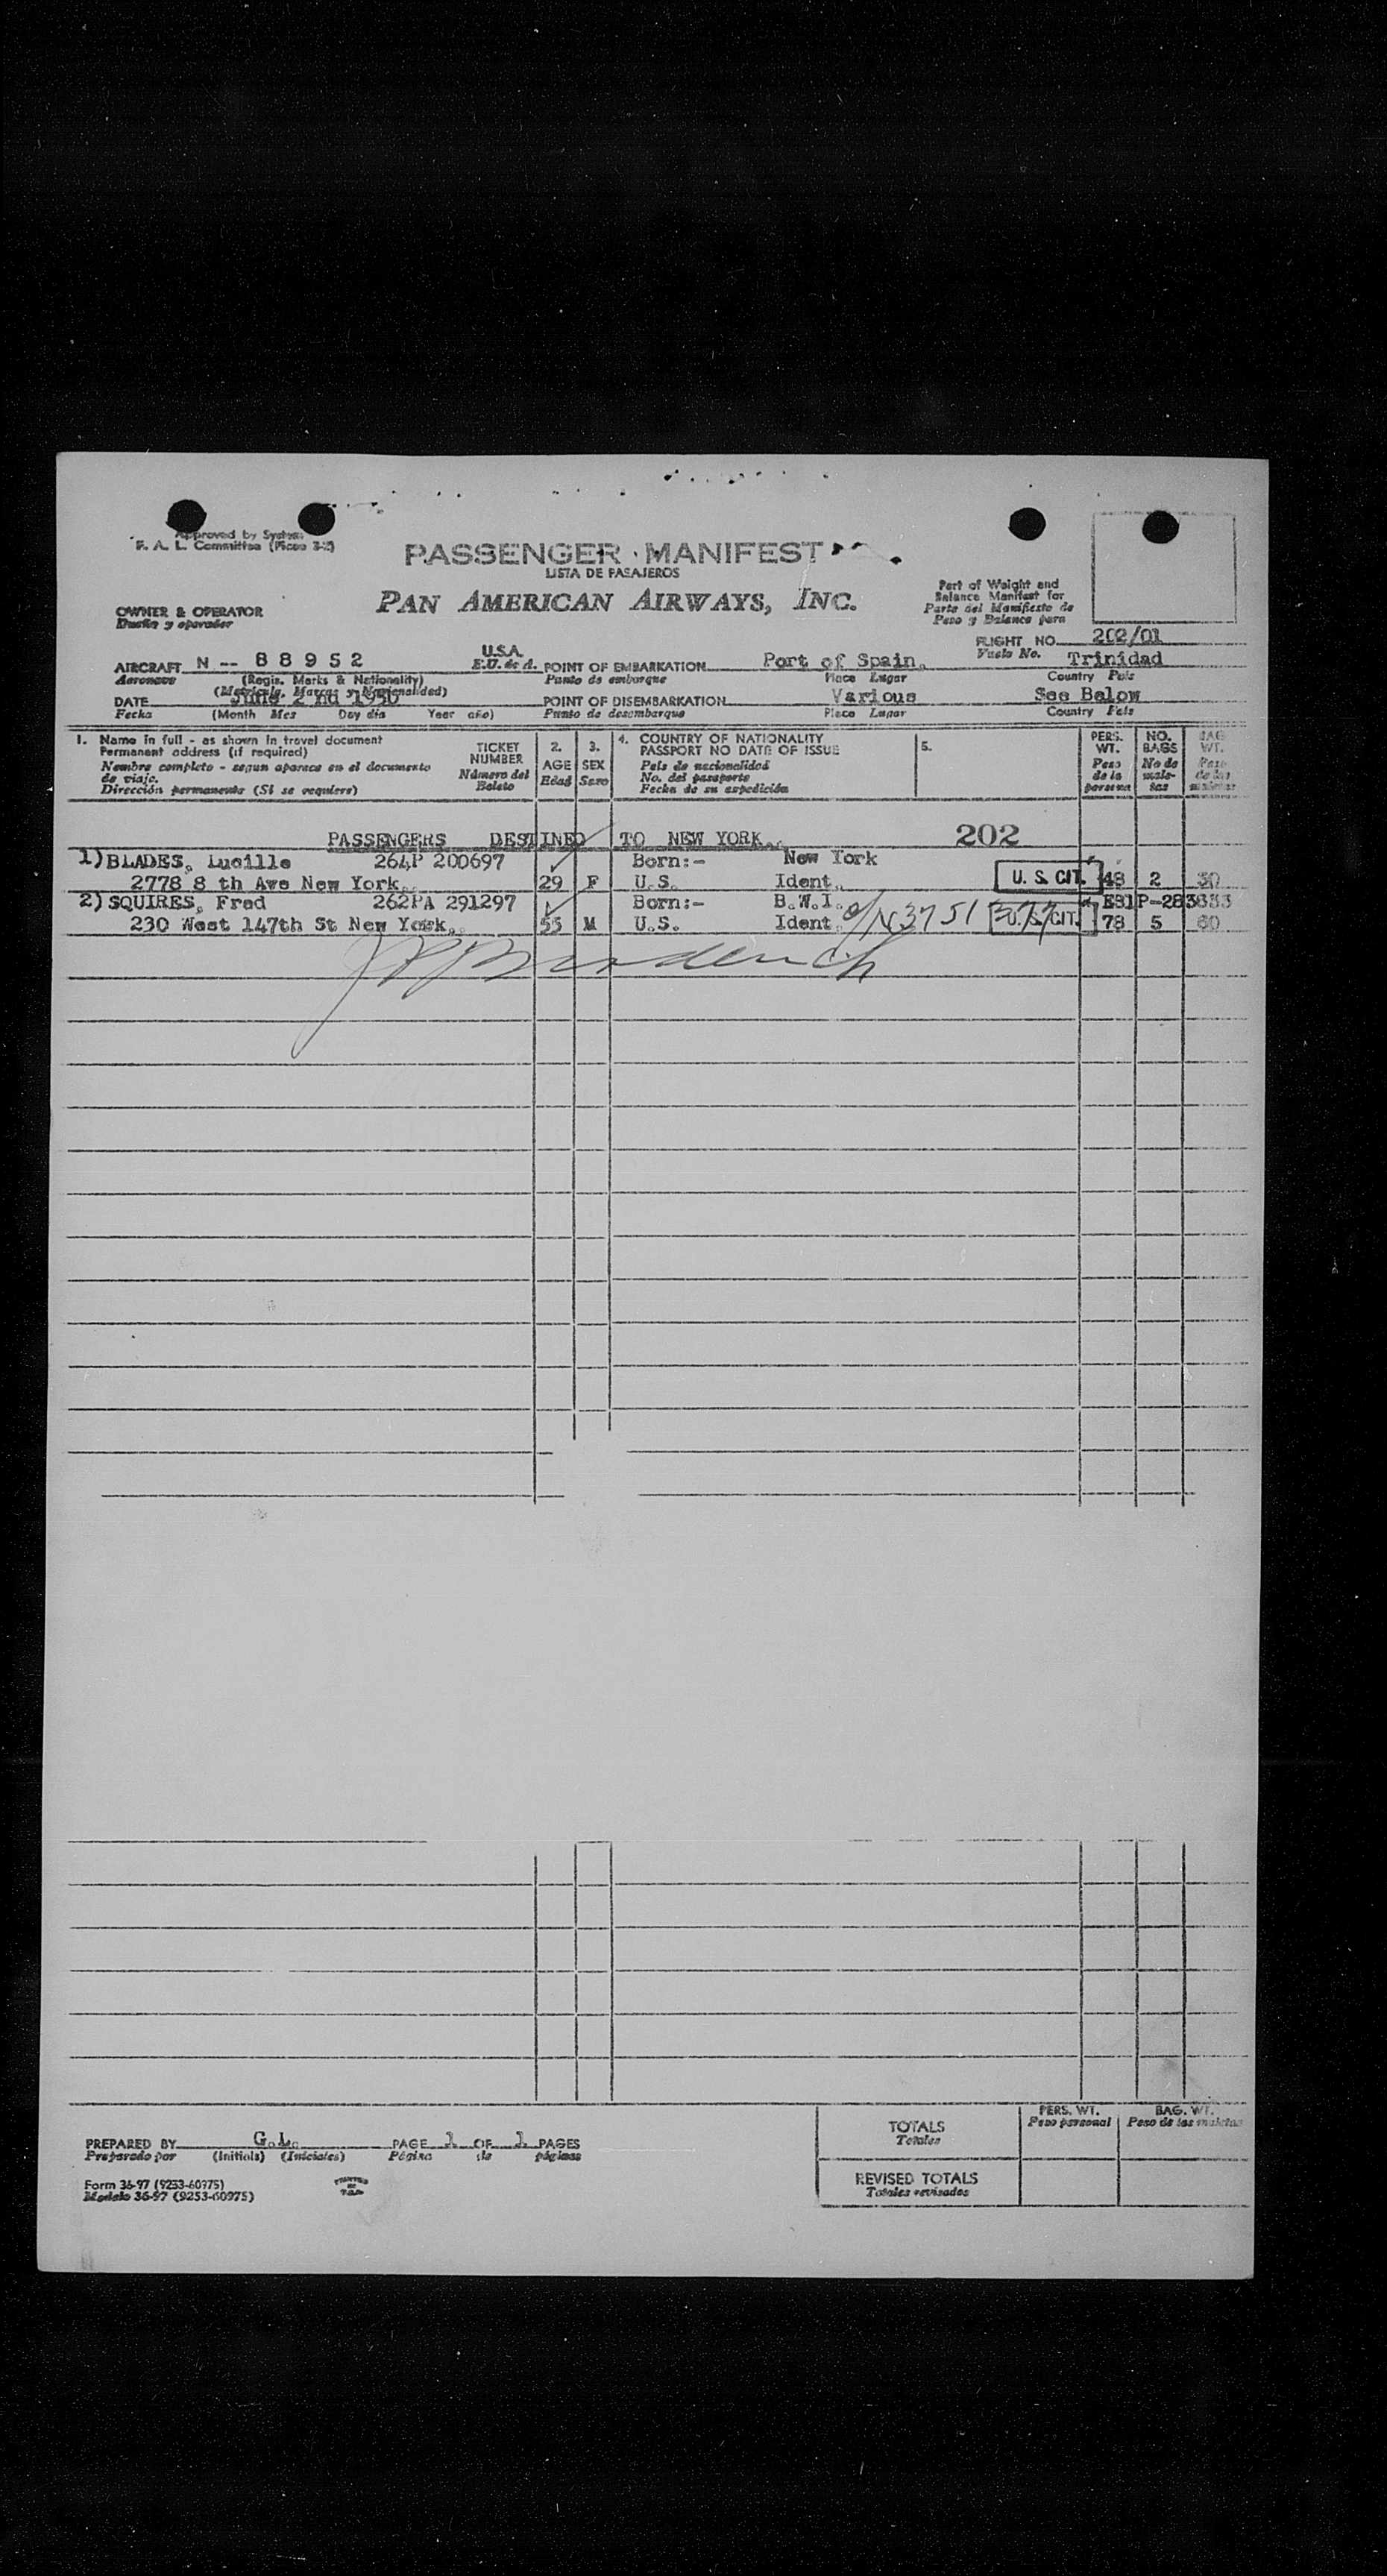 Approved by System
F. A. L. Committee
PASSENGER MANIFEST
LISTA DE PASAJEROS
PAN AMERICAN AIRWAYS, INC.
Part of Weight and
Balance Manifest for
Parte del Manifiesto de
Peso y Balance para
OWNER & OPERATOR
Dueño y operador
FLIGHT NO. 202/01
Vuelo No.
AIRCRAFT N -- 88952 U.S.A. POINT OF EMBARKATION Port of Spain. Trinidad
Aeronave (Regis. Marks & Nationality) E.U. de A. Punto de embarque Place Lugar Country País
(Matrícula, Marcas y Nacionalidad)
DATE June 2 nd 1950 POINT OF DISEMBARKATION Various See Below
Fecha (Month Mes Day día Year año) Punto de desembarque Place Lugar Country País
1. Name in full - as shown in travel document
Permanent address (if required)
Nombre completo - segun aparece en el documento
de viaje.
Dirección permanente (Si se requiere)
TICKET
NUMBER
Número del
Boleto
2.
AGE
Edad
3.
SEX
Sexo
4. COUNTRY OF NATIONALITY
PASSPORT NO DATE OF ISSUE
País de nacionalidad
No. del pasaporte
Fecha de su expedición
5.
PERS.
WT.
Peso
de la
persona
NO.
BAGS
No de
male-
tas
BAG
WT.
Peso
de las
maletas
PASSENGERS DESTINED TO NEW YORK. 202
1) BLADES, Lucille 264P 200697 Born:- New York
2778 8 th Ave New York. 29 F U.S. Ident. U. S. CIT. 48 2 30
2) SQUIRES, Fred 262PA 291297 Born:- B.W.I. E81P-283633
230 West 147th St New York. 55 M U.S. Ident. U. S. CIT. 78 5 60
TOTALS
Totales
PERS. WT.
Peso personal
BAG. WT.
Peso de las maletas
PREPARED BY G.L. PAGE 1 OF 1 PAGES
Preparado por (Initials) (Iniciales) Página de páginas
REVISED TOTALS
Totales revisados
Form 36-97 (9253-60975)
Modelo 36-97 (9253-60975)
PRINTED
IN
U.S.A.